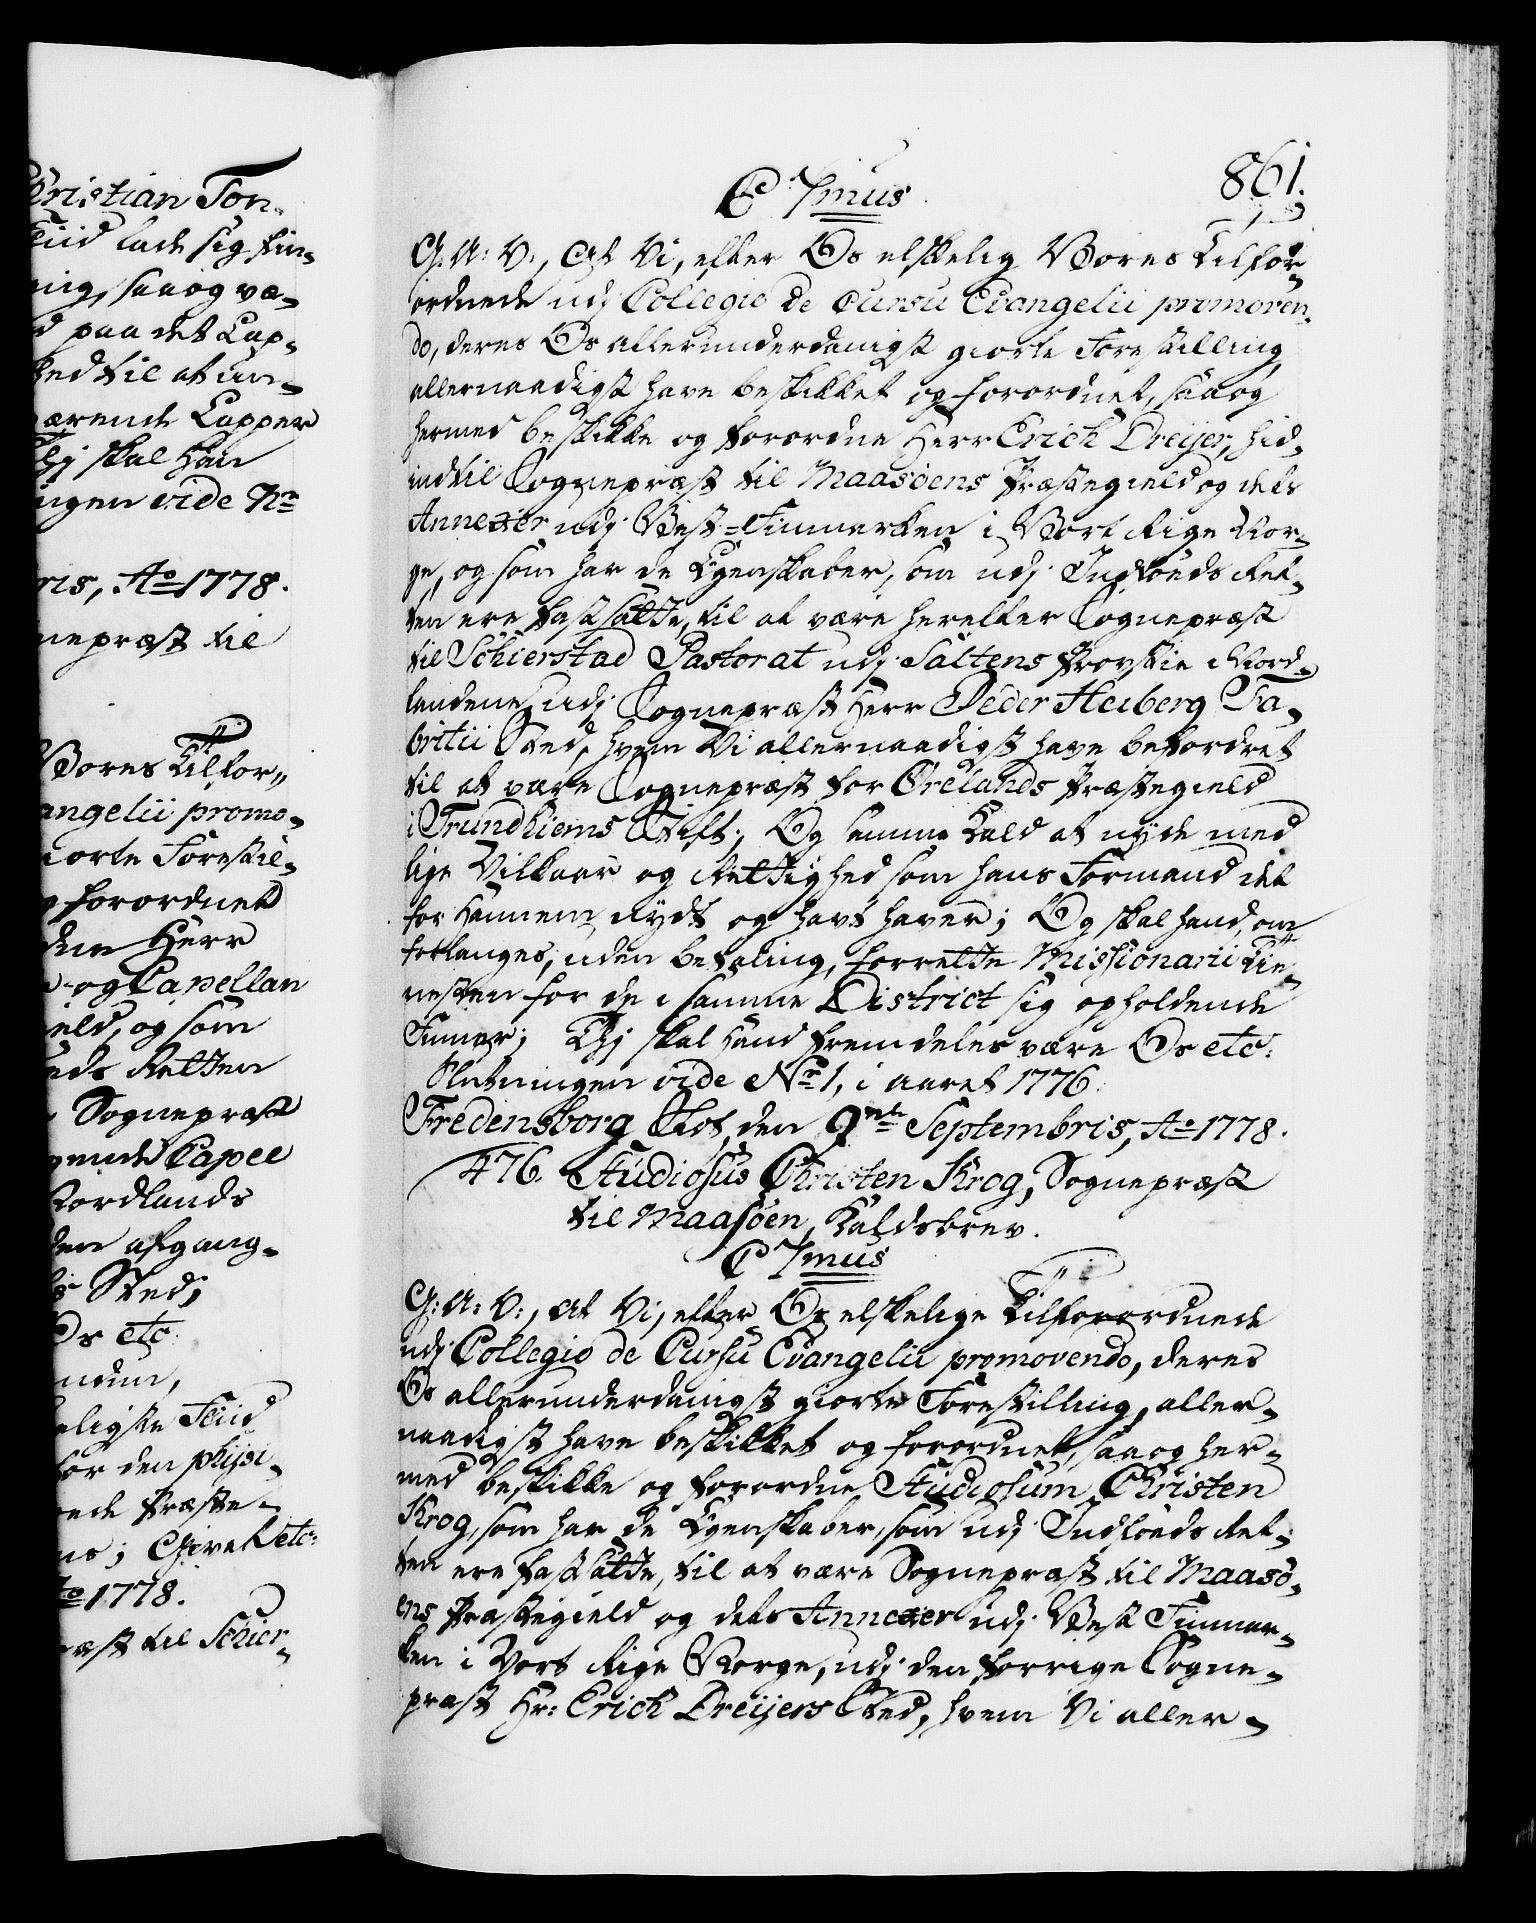 hristian Ton-
Tiid lade sig fin-
ning, saa og væ-
d paa det Lap-
ked til at un-
værende Lapper
Thj skal Han
ingen vide No
ris, Ao 1778.
nepræst til
Vores Tilfor-
angelii promo-
iorte Forestil-
forordnet
den Herr
og Capellan
ield, og som
eds Retten
Sognepræst
gende Capel
Nordlands
den afgang-
s Sted;
Os etc.
ndum,
eligste Tiid
for den physi-
ede Præste-
ns; Givet etc:
to 1778.
æst til Schier-
861.
C 7mus
G: A: V:, At Vi, efter Os elskelig Vores Tilfor-
ordnede udj Collegio de Cursu Evangelii promoven-
do, deres Os allerunderdanigst giorte Forestilling,
allernaadigst have beskikket og forordnet, saa og
hermed beskikke og forordne Herr Erich Dreijer, hid-
indtil Sognepræst til Maasøens Præstegield og dets
Annexer udj West-Finmarken i Vort Rige Nor-
ge, og som har de Egenskaber, som udj Indføds Ret-
ten ere fastsatte, til at være herefter Sognepræst
til Schierstad Pastorat udj Saltens Provstie i Nord-
landene, udj Sognepræst Herr Peder Heiberg Fa-
britii Sted, hvem Vi allernaadigst have befordret
til at være Sognepræst for Ørelands Præstegield
i Trundhiems Stift; Og samme Kald at nyde med
lige Vilkaar og Rettighed som hans Formand det
for Hannem nydt og havt haver; Og skal hand, om
forlanges, uden betaling, forrette Missionarii Tie-
nesten for de i samme District sig opholdende
Finner; Thj skal Hand fremdeles være Os etc:
Slutningen vide No 1, i aaret 1776.
Fredensborg Slot, den 9de Septembris, Ao 1778.
476. Studiosus Christen Krog, Sognepræst
til Maasøen, Kaldsbrev.
C 7mus
G: A: V:, At Vi, efter Os elskelige Tilforordnede
udj Collegio de Cursu Evangelii promovendo, deres
Os allerunderdanigst giorte Forestilling, aller-
naadigst have beskikket og forordnet, saa og her-
med beskikke og forordne Studiosum Christen
Krog, som har de Egenskaber, som udj Indføds Ret-
ten ere fastsatte, til at være Sognepræst til Maasø-
ens Præstegield og dets Annexer udj West Finmar-
ken i Vort Rige Norge, udj den forrige Sogne-
præst Hr: Erich Dreijers Sted, hvem Vi aller-